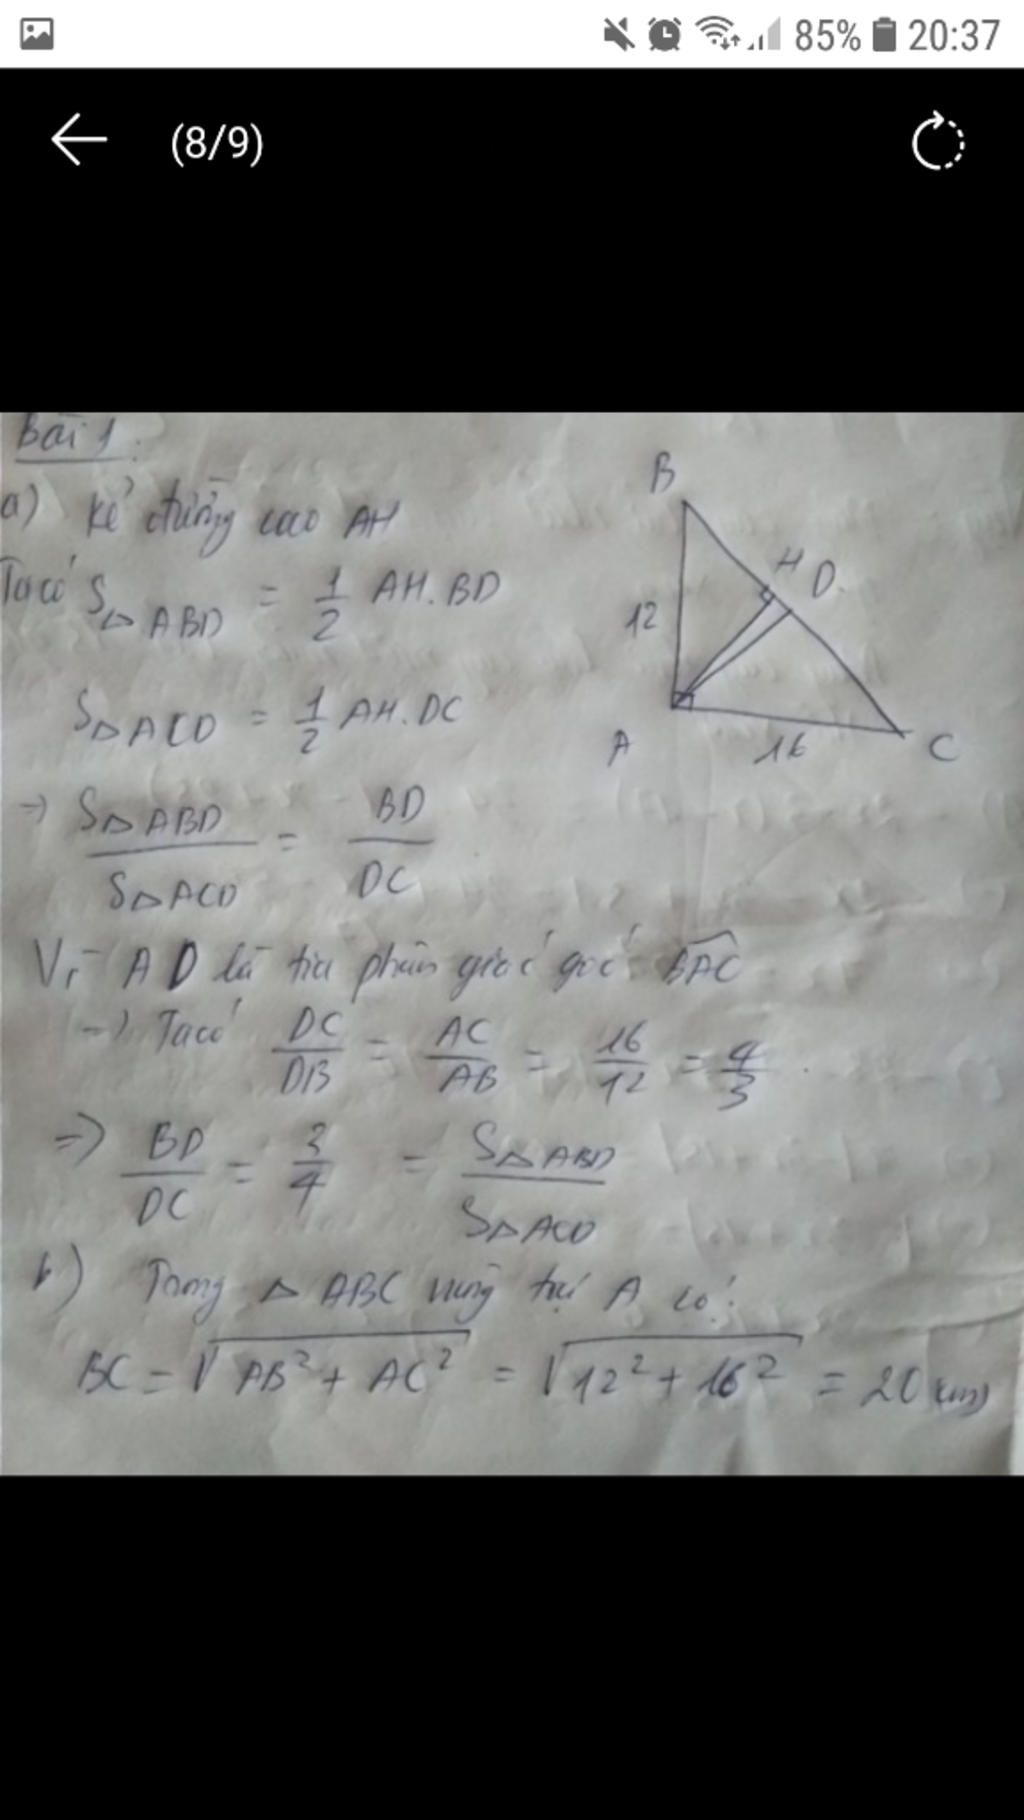 85% 20:37
(8/9)
Bài 1.
a) Kẻ đường cao AH
Ta có S△ABD = 1/2 AH.BD
S△ACD = 1/2 AH.DC
B
H D
12
A
16
C
→ S△ABD / S△ACD = BD / DC
Vì AD là tia phân giác góc BAC
→ Ta có DC/DB = AC/AB = 16/12 = 4/3
⇒ BD/DC = 3/4 = S△ABD / S△ACD
b) Trong △ABC vuông tại A có:
BC = √AB² + AC² = √12² + 16² = 20 (cm)